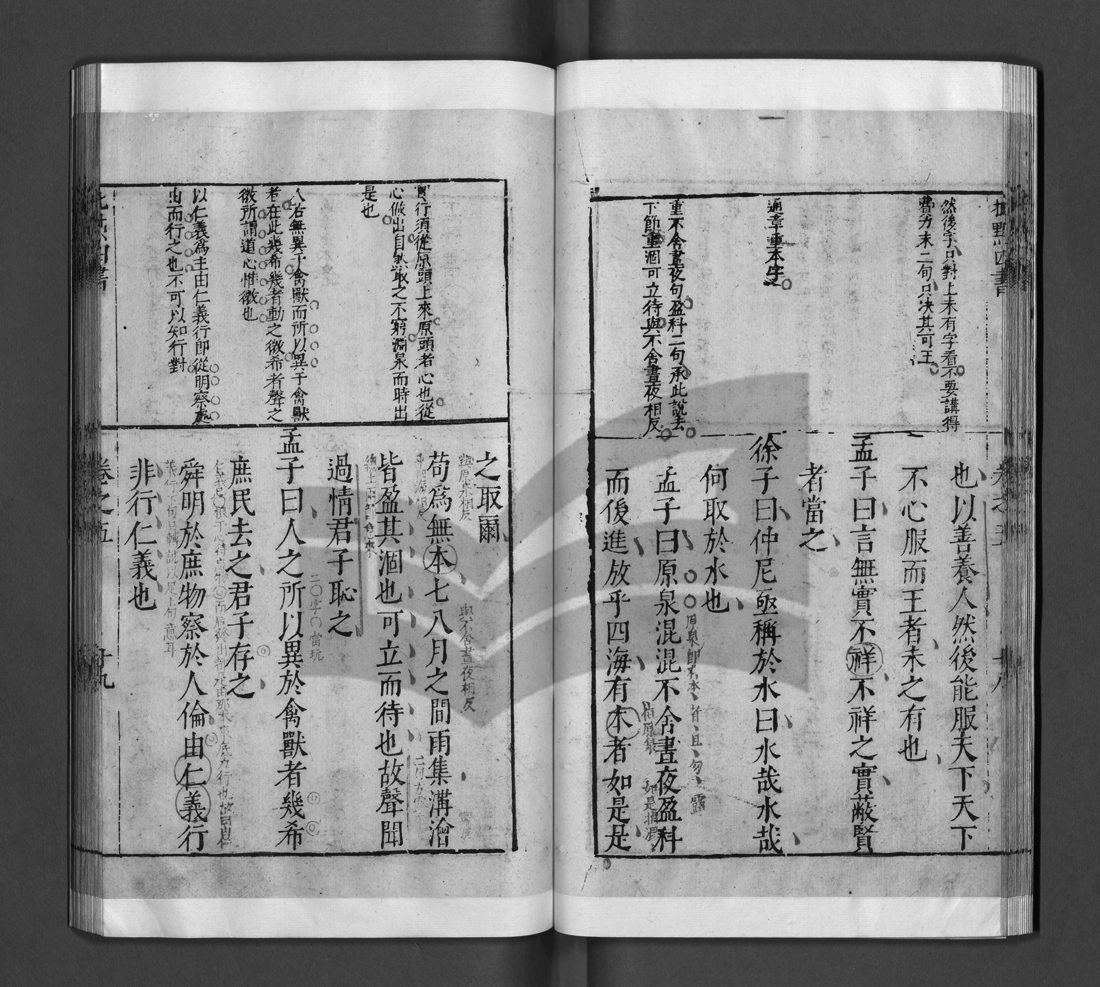 批點四書
然後字只對上未有字看不要講得
費力末二句只决其可王
通章重本字
重不舍晝夜句盈科二句承此說去
下節重涸可立待與不舍晝夜相反
卷之五
十八
也以善養人然後能服天下天下
不心服而王者未之有也
孟子曰言無實不祥不祥之實蔽賢
者當之
徐子曰仲尼亟稱於水曰水哉水哉
何取於水也
孟子曰原泉混混不舍晝夜盈科
而後進放乎四海有本者如是是
實行須從原頭上來原頭者心也從
心做出自然取之不窮淵泉而時出
是也
人若無異于禽獸而所以異于禽獸
者在此幾希幾者動之微希者聲之
微所謂道心惟微也
以仁義爲主由仁義行即從明察處
由而行之也不可以知行對
之取爾
與原泉相反
苟爲無本七八月之間雨集溝澮
與不舍晝夜相反
皆盈其涸也可立而待也故聲聞
過情君子恥之
孟子曰人之所以異於禽獸者幾希
二〇字〇當玩
庶民去之君子存之
舜明於庶物察於人倫由仁義行
非行仁義也
卷之五
十九
批點四書